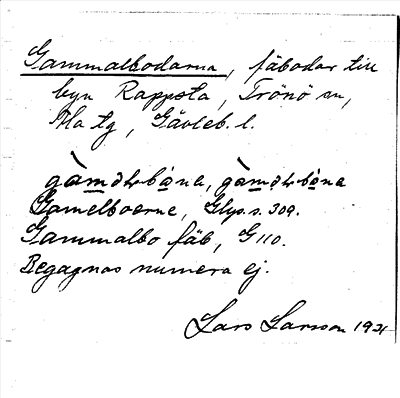 Gammalbodarna, fäbodar till
byn Rappsta, Trönö sn,
Ala tg, Gävleb. l.
Gamelboerne, Glys. s. 309.
Gammalbo fäb, G 110.
Begagnas numera ej.
Lars Larsson 1931